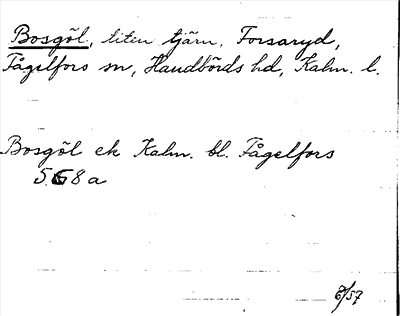 Bosgöl, liten tjärn, Forsaryd,
Fågelfors sn, Handbörds hd, Kalm. l.
Bosgöl ek Kalm. bl. Fågelfors
5 G 8 a
8/57